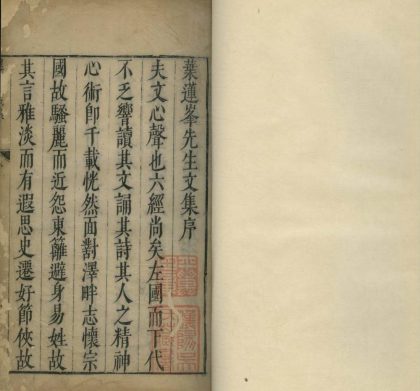 葉蓮峯先生文集序
夫文心聲也六經尚矣左國而下代
不乏響讀其文誦其詩其人之精神
心術卽千載恍然面對澤畔志懷宗
國故騷麗而近怨東籬避身易姓故
其言雅淡而有遐思史遷好節俠故